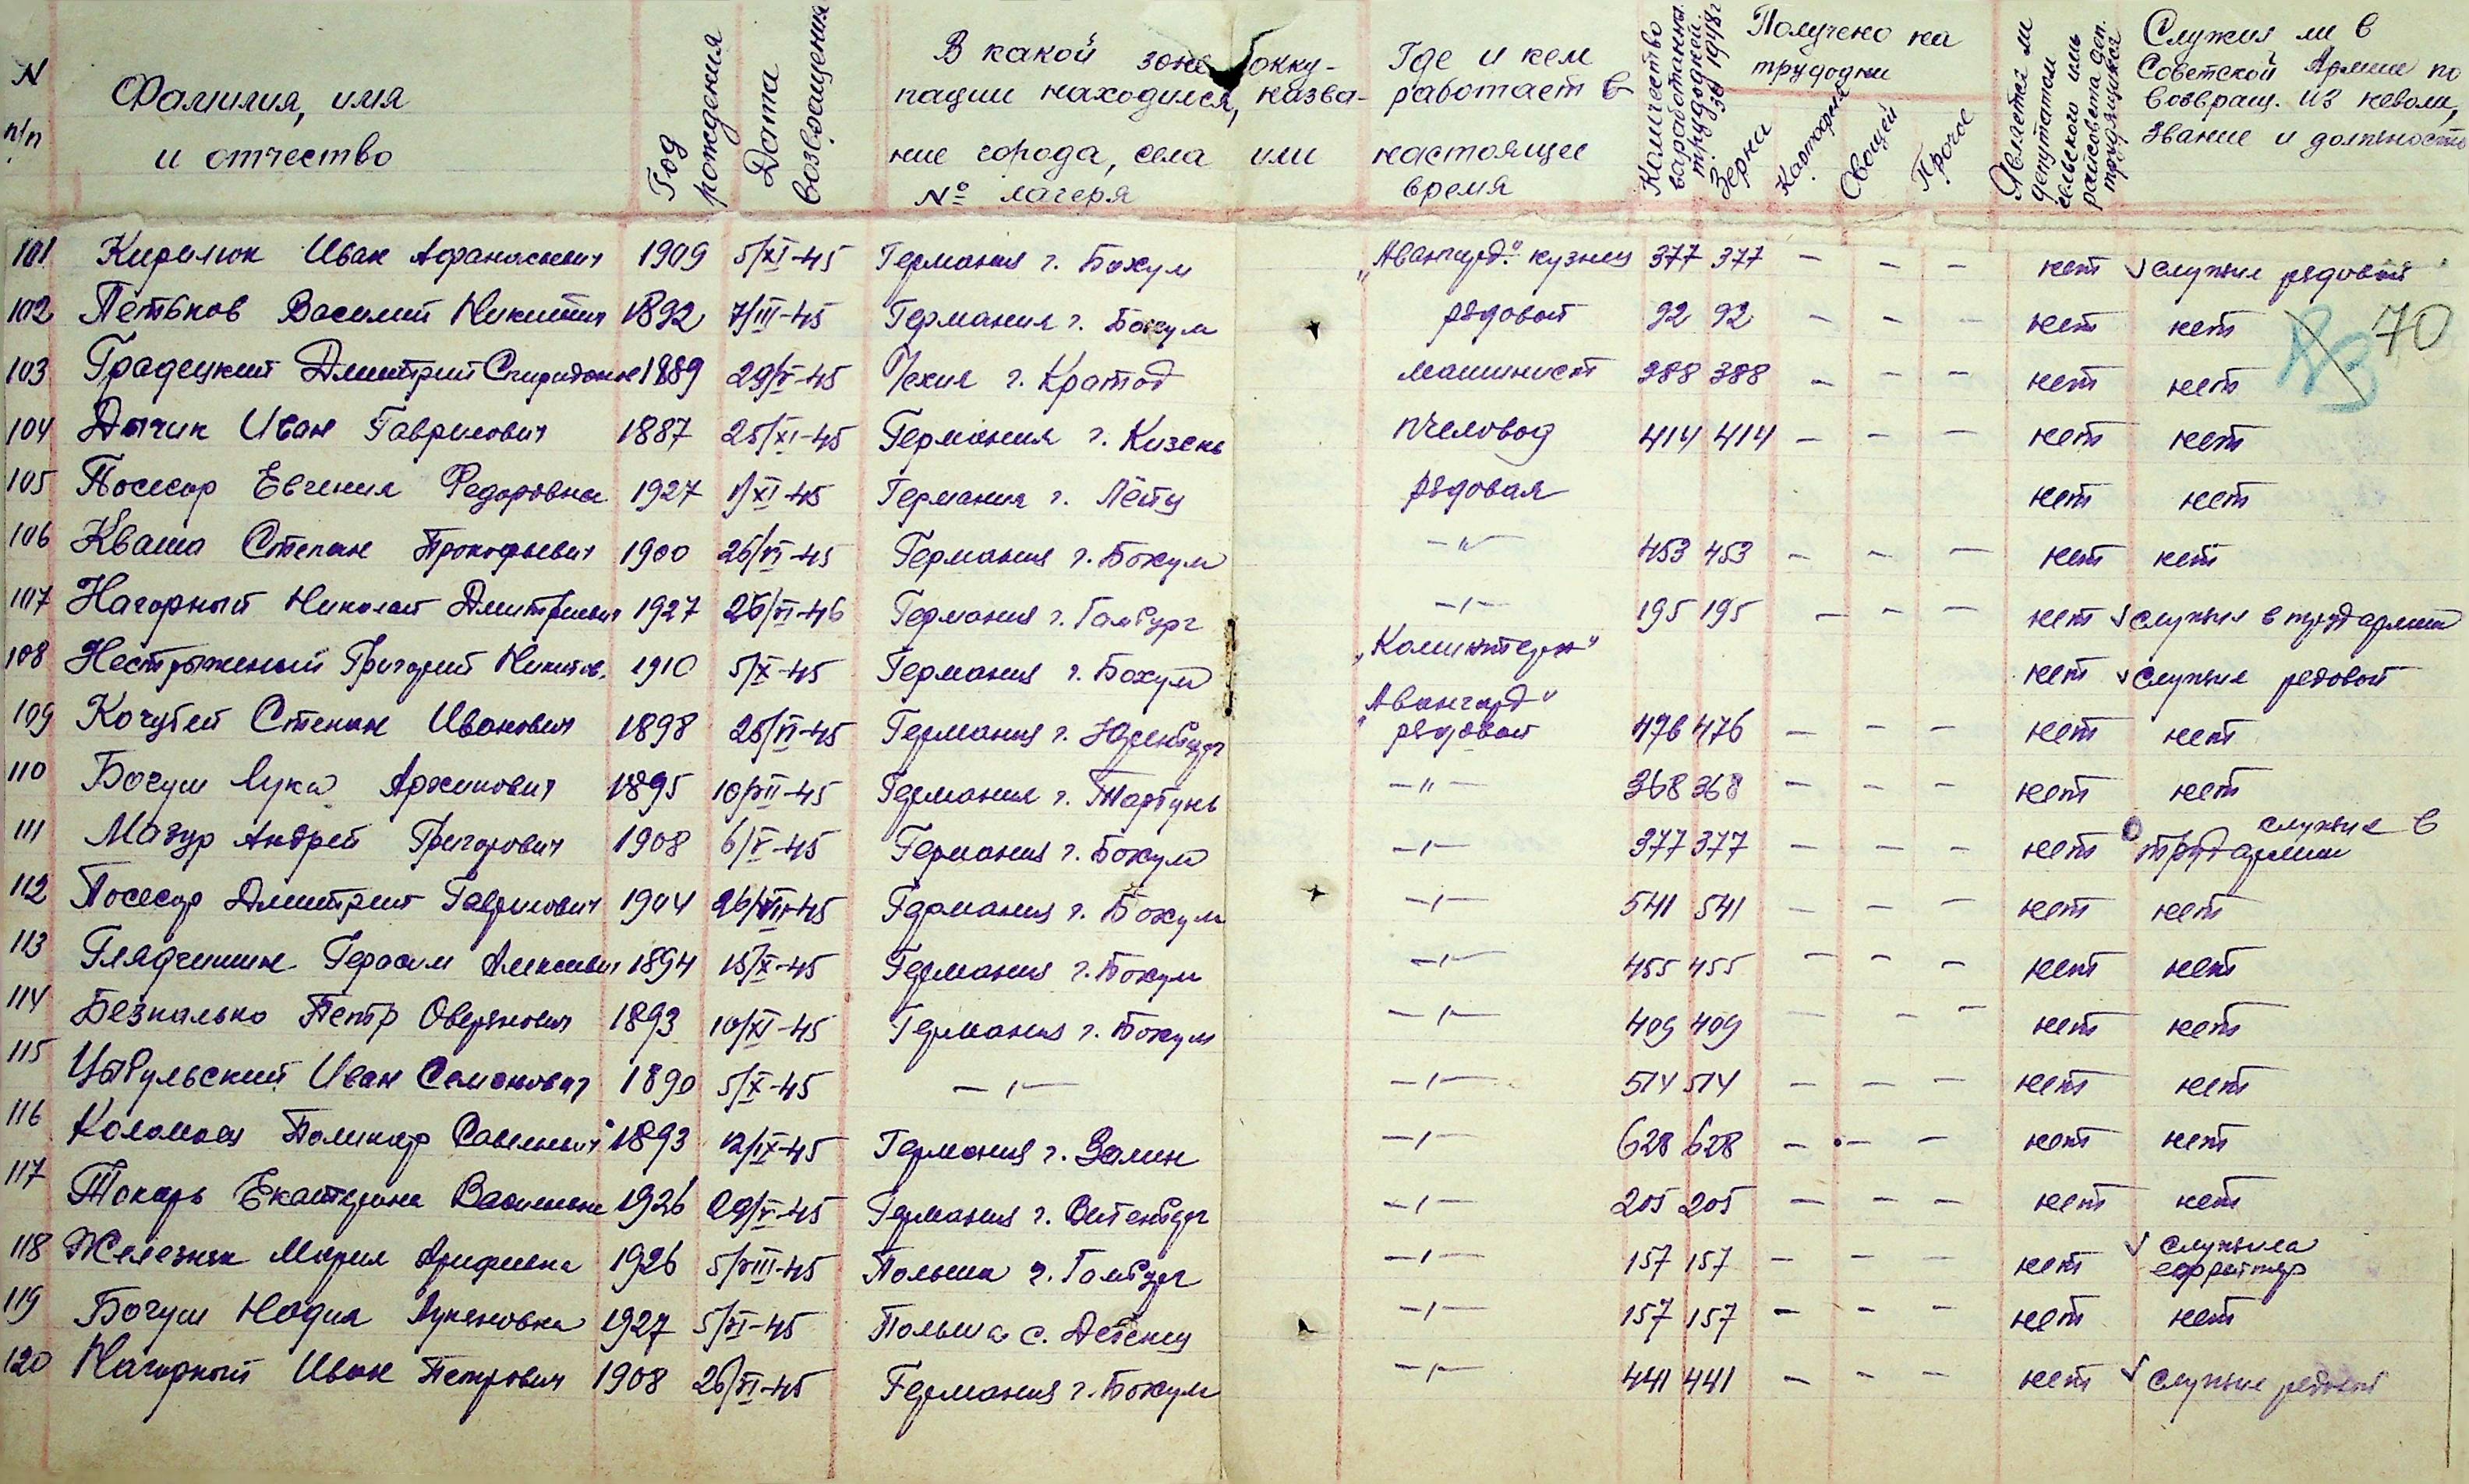 N п/п
Фамилия, имя и отчество
Год рождения
Дата возвращения
В какой зоне оккупации находился, название города, села или № лагеря
Где и кем работает в настоящее время
Количество выработанных трудодней за 1948 г
Получено на трудодни
Зерна
Картофеля
Овощей
Прочее
Является ли депутатом сельского или райсовета деп. трудящихся
Служил ли в Советской Армии по возвращ. из неволи, звание и должность
70
101 Кирилюк Иван Афанасиевич 1909 5/XI-45 Германия г. Бохум "Авангард" кузнец 377 377 – – – нет √ служил рядовой
102 Петьков Василий Никитич 1892 7/III-45 Германия г. Бохум рядовой 92 92 – – – нет нет
103 Градецкий Дмитрий Спиридонов 1889 29/V-45 Чехия г. Кратод машинист 388 388 – – – нет нет
104 Дычик Иван Гаврилович 1887 25/XI-45 Германия г. Кизень пчеловод 414 414 – – – нет нет
105 Посесор Евгения Федоровна 1927 1/XI-45 Германия г. Лёйц рядовая нет нет
106 Кваша Степан Прокофьевич 1900 26/VI-45 Германия г. Бохум –"– 453 453 – – – нет нет
107 Нагорный Николай Дмитриевич 1927 26/VI-46 Германия г. Гамбург –"– 195 195 – – – нет √ служил в трудармии
108 Нестрыженый Григорий Никитов. 1910 5/X-45 Германия г. Бохум "Коминтерн" нет √ служил редовой
109 Кочубей Степан Иванович 1898 28/VI-45 Германия г. "Авангард" рядовой 476 476 – – – нет нет
110 Богуш Лука Архипович 1895 10/VII-45 Германия г. –"– 368 368 – – – нет нет
111 Мазур Андрей Григорович 1908 6/V-45 Германия г. Бохум –"– 377 377 – – – нет служил в трудармии
112 Посесор Дмитрий Гаврилович 1904 26/VII-45 Германия г. Бохум –"– 541 541 – – – нет нет
113 Глядчишин Герасим Алексеевич 1894 15/X-45 Германия г. Бохум –"– 455 455 – – – нет нет
114 Безпалько Петр Оверянович 1893 10/XI-45 Германия г. Бохум –"– 409 409 – – – нет нет
115 Цыбульский Иван Семенович 1890 5/X-45 –"– –"– 514 514 – – – нет нет
116 Коломиец Поликар Савельевич 1893 12/IX-45 Германия г. Залин –"– 628 628 – – – нет нет
117 Токарь Екатерина Васильевна 1926 29/V-45 Германия г. Витенберг –"– 205 205 – – – нет нет
118 Железняк Мария Арифиевна 1926 5/VIII-45 Польша г. Гамбург –"– 157 157 – – – нет √ служила ефрейтор
119 Богуш Надия Лукяновна 1927 5/VI-45 Польша с. –"– 157 157 – – – нет нет
120 Нагорный Иван Петрович 1908 26/VI-45 Германия г. Бохум –"– 441 441 – – – нет √ служил редовой